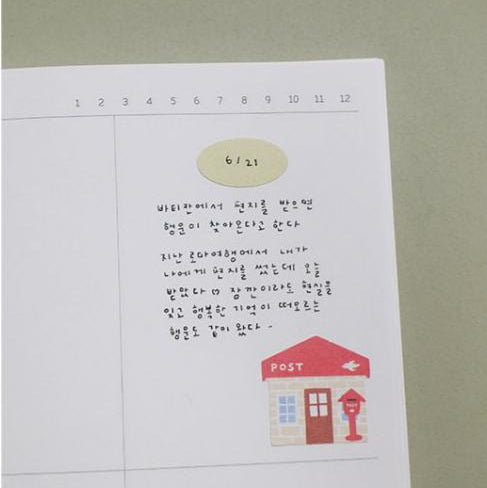 1 2 3 4 5 6 7 8 9 10 11 12
6/21
바티칸에서 편지를 받으면
행운이 찾아온다고 한다
지난 로마여행에서 내가
나에게 편지를 썼는데 오늘
받았다 ♡ 잠깐이라도 현실을
잊고 행복한 기억이 떠오르는
행운도 같이 왔다 -
POST